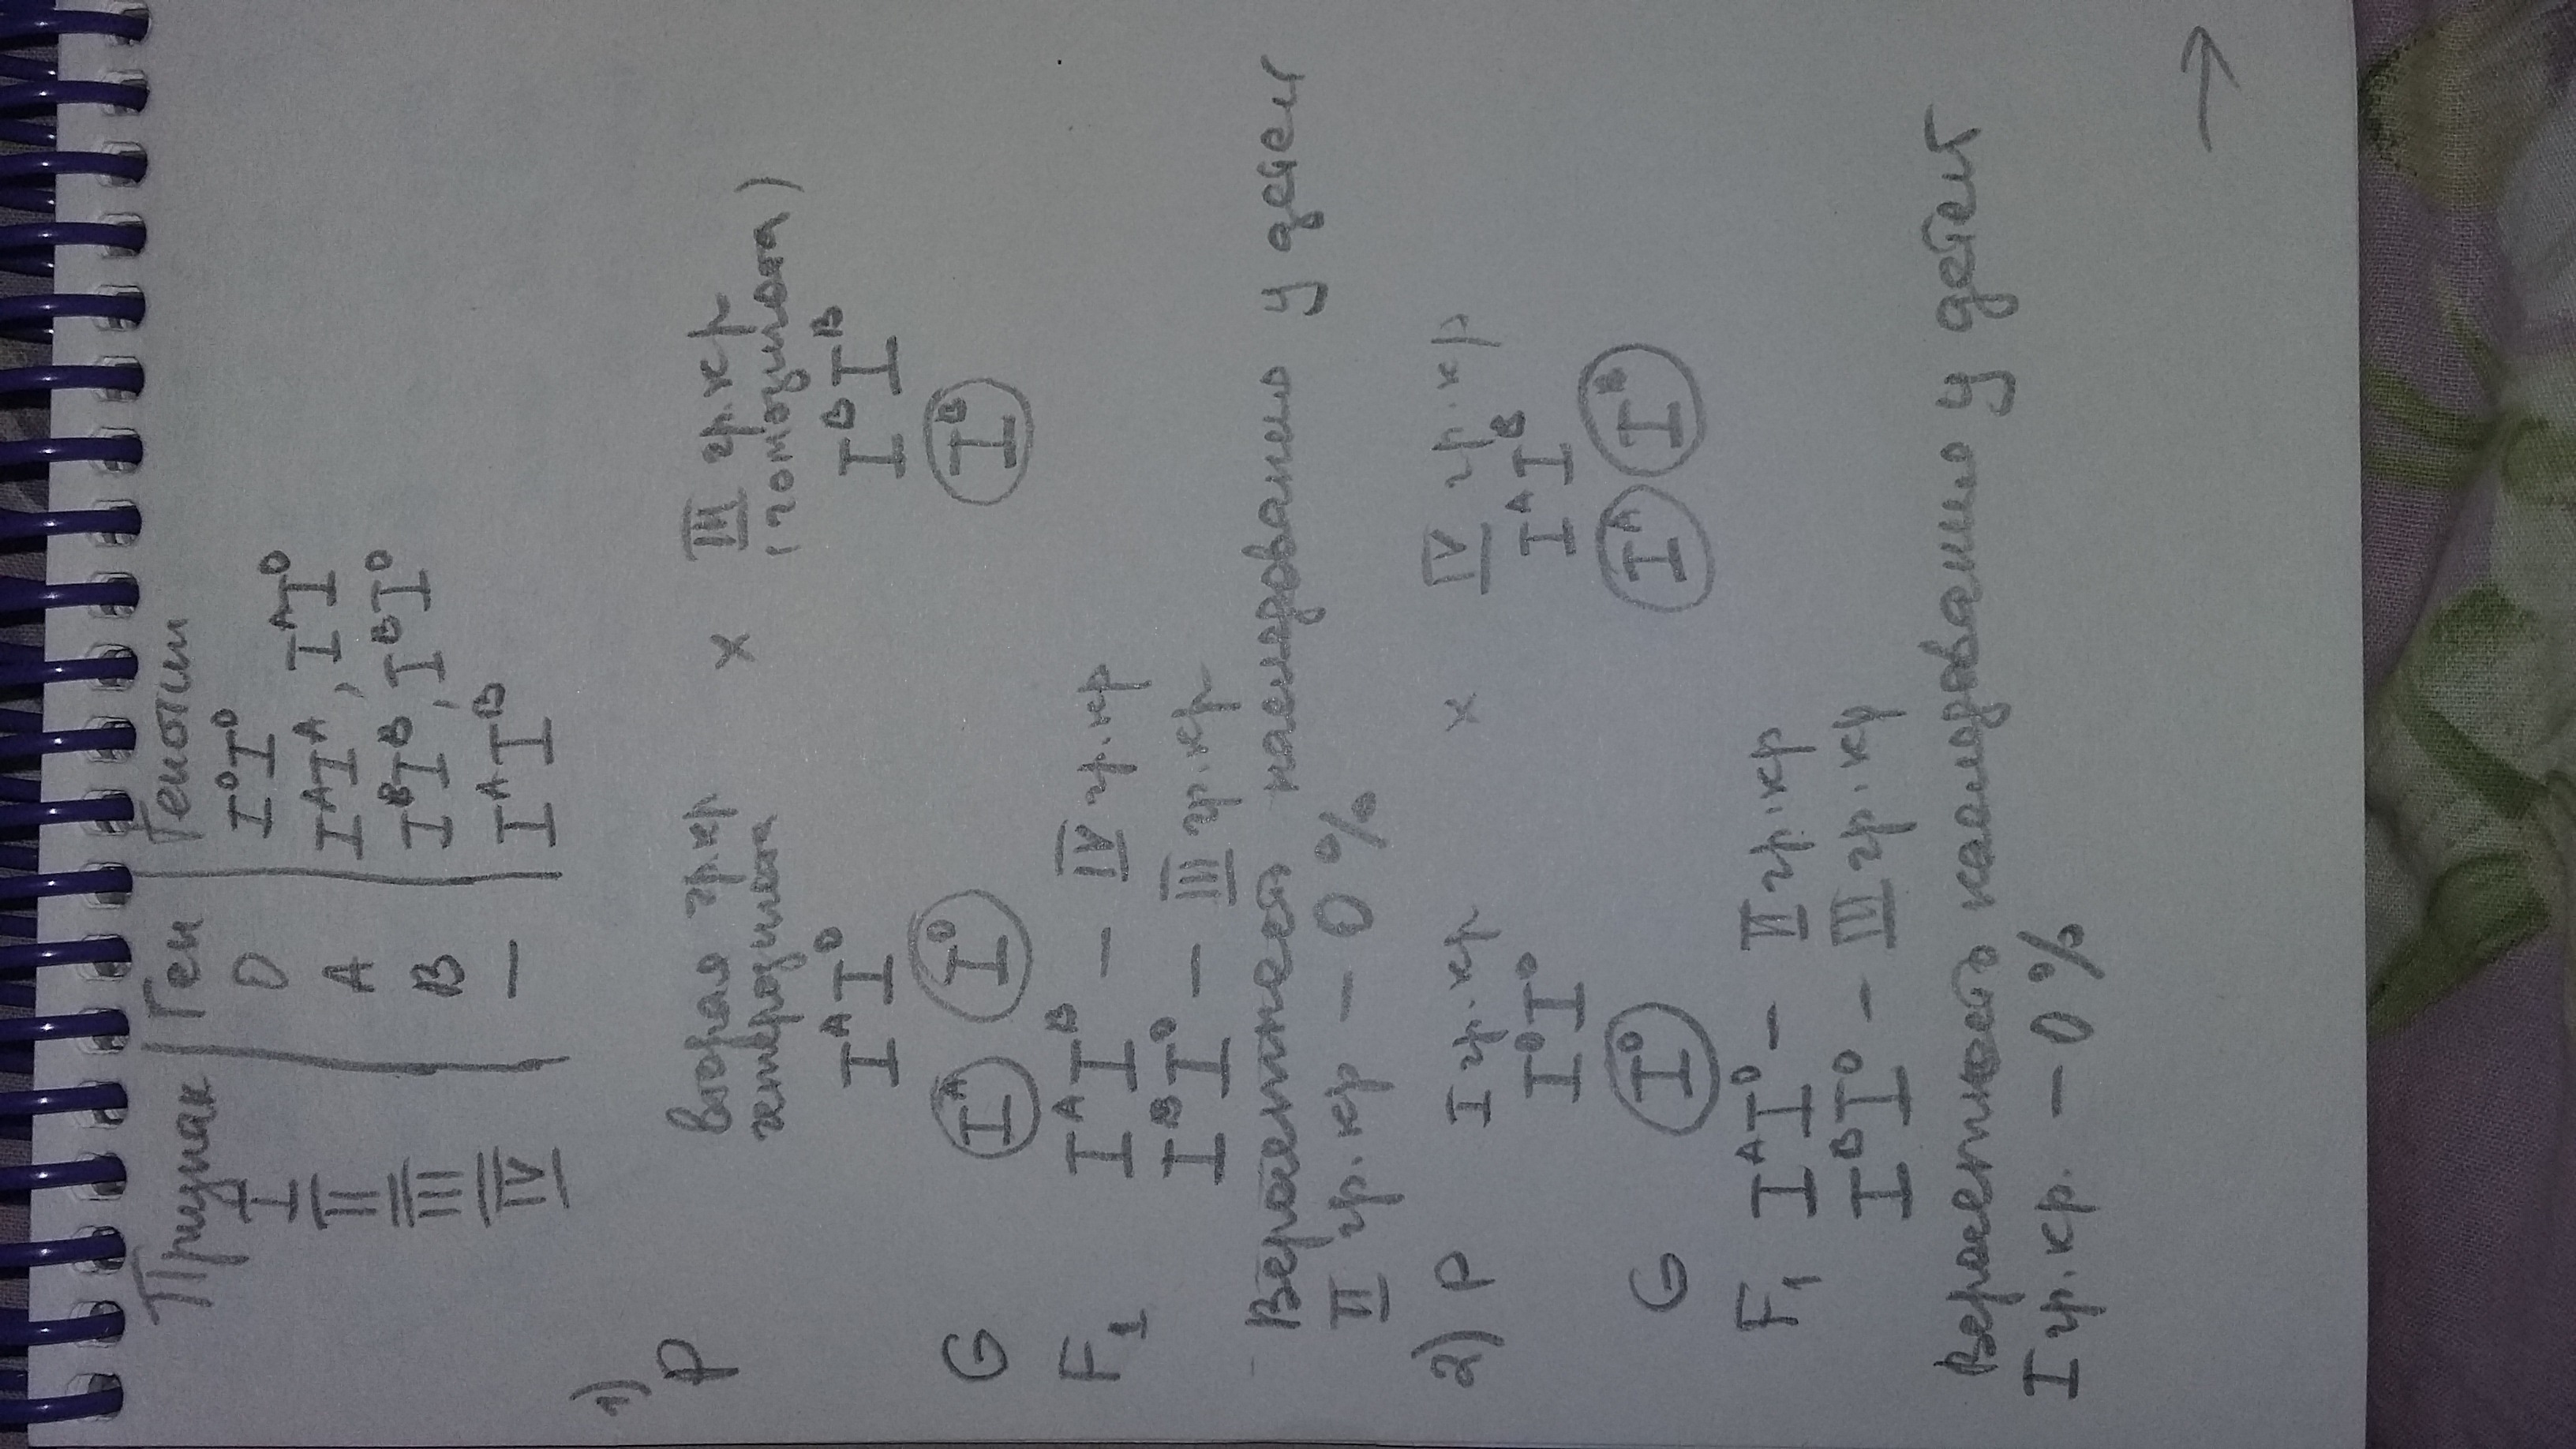 Признак Ген Генотип
I 0 I⁰I⁰
II A IᴬIᴬ, IᴬI⁰
III B IᴮIᴮ, IᴮI⁰
IV – IᴬIᴮ
1)
P вторая гр.кр × III гр.кр
гетерозигота (гомозигота)
IᴬI⁰ IᴮIᴮ
G Iᴬ I⁰ Iᴮ
F₁ IᴬIᴮ – IV гр.кр
IᴮI⁰ – III гр.кр
Вероятность наследования у детей
II гр.кр – 0%
2) P I гр.кр × IV гр.кр
I⁰I⁰ IᴬIᴮ
G I⁰ Iᴬ Iᴮ
F₁ IᴬI⁰ – II гр.кр
IᴮI⁰ – III гр.кр
Вероятность наследования у детей
I гр.кр. – 0%
→